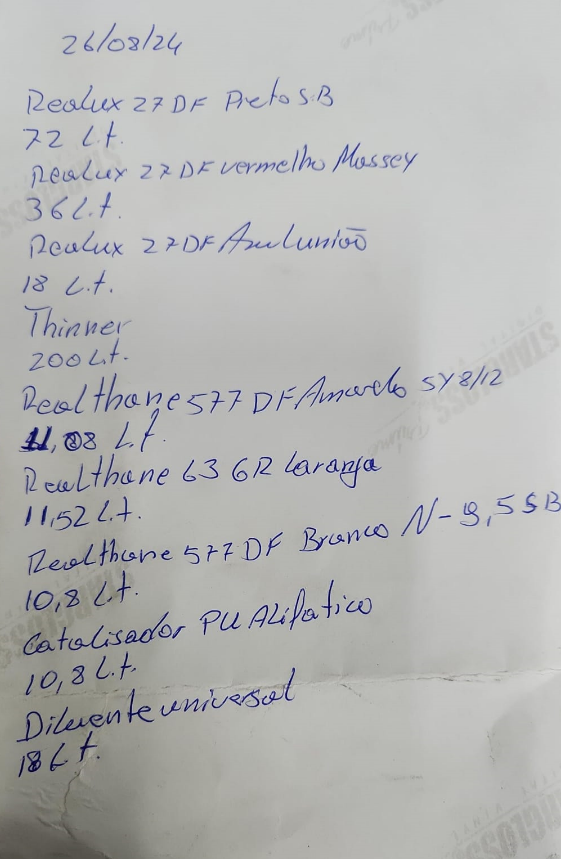 26/08/24
Realux 27 DF Preto S.B
72 L.t.
Realux 27 DF vermelho Massey
36 L.t.
Realux 27 DF Azul união
18 L.t.
Thinner
200 Lt.
Realthane 577 DF Amarelo 5Y8/12
11,08 L.t.
Realthane 636R Laranja
11,52 L.t.
Realthane 577 DF Branco N-9,5 SB
10,8 L.t.
Catalisador PU Alifatico
10,8 L.t.
Diluente universal
18 L t.